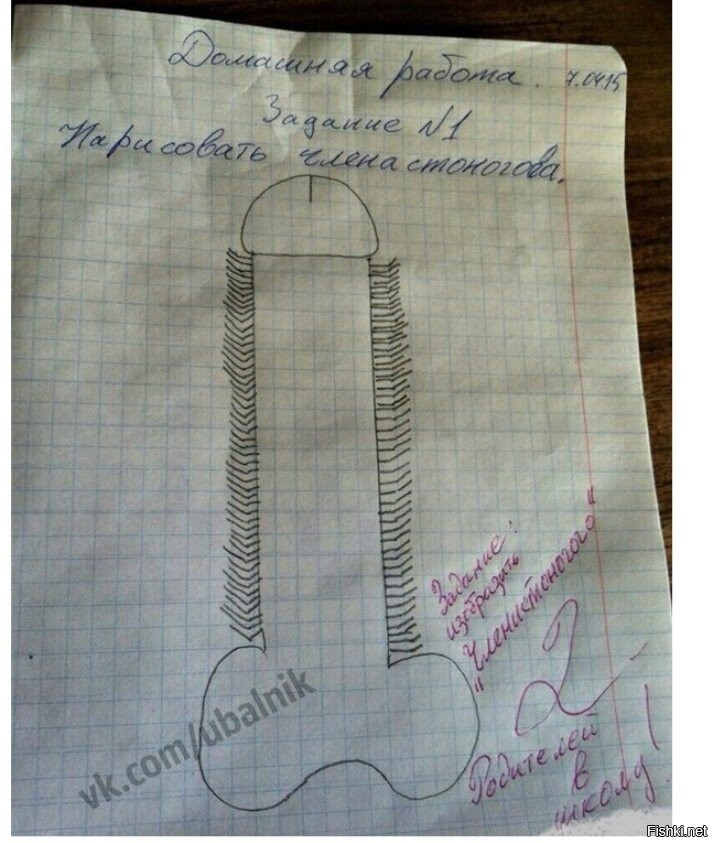 Домашняя работа. 7.04.15
Задание №1
Нарисовать члена стоногова.
Задание:
изобразить
"Членистоногого"
2
Родителей
в
школу!
vk.com/ubalnik
Fishki.net